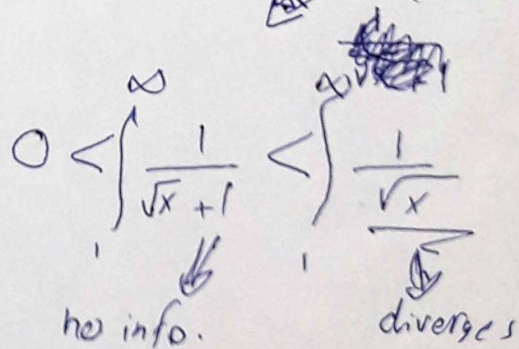 0 < ∫₁^∞ 1/(√x + 1) < ∫₁^∞ 1/√x
no info. diverges